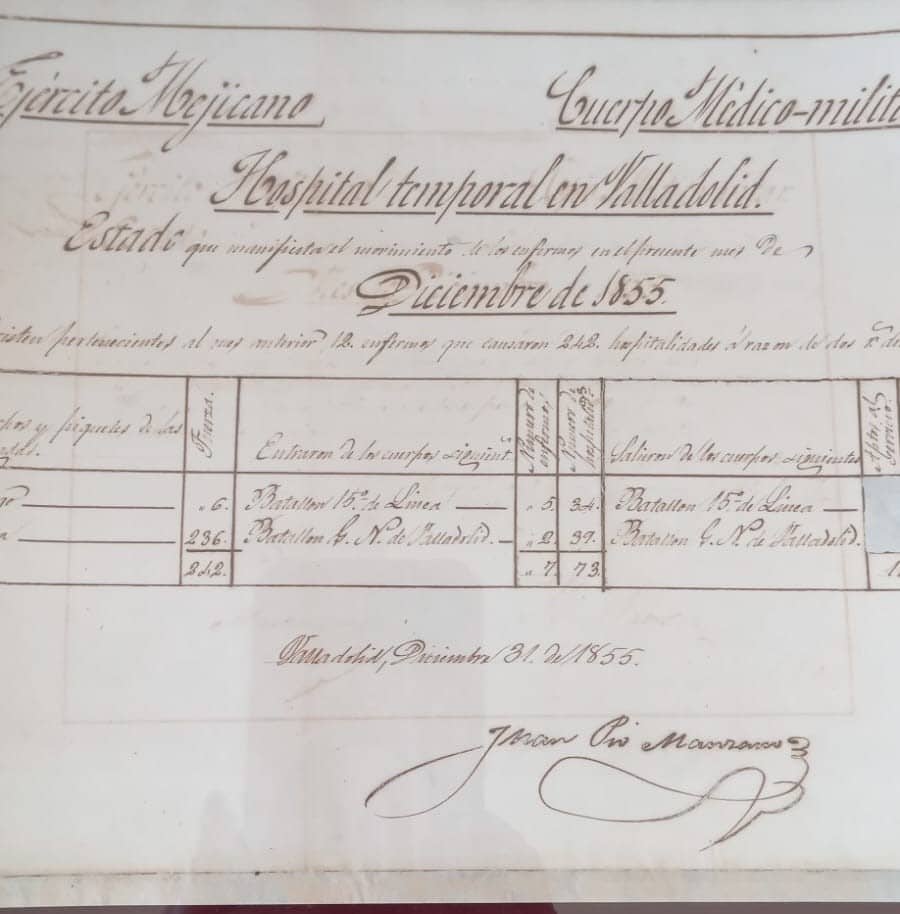 Ejército Mejicano
Cuerpo Médico-milit
Hospital temporal en Valladolid.
Estado que manifiesta el movimiento de los enfermos en el presente mes de
Diciembre de 1855.
isten pertenecientes al mes anterior 12. enfermos que causaron 242. hospitalidades á razon de dos rs. de
y piquetes de las
Fuerza.
Entraron de los cuerpos siguient.s
Número de enfermos
Número de hospitalid.s
Salieron de los cuerpos siguientes
Altas al Servicio.
" 6. Batallon 15º. de Linea " 5. 34. Batallon 15º. de Linea
236. Batallon G. N. de Valladolid. " 2. 39. Batallon G. N. de Valladolid.
242. " 7. 73. 1
Valladolid, Diciembre 31. de 1855.
Juan Pio Manzano